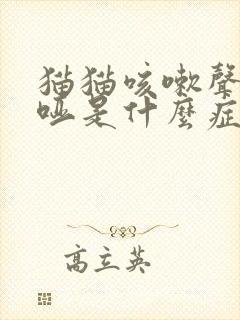 猫猫咳嗽聲
哑是什麼症
高立英